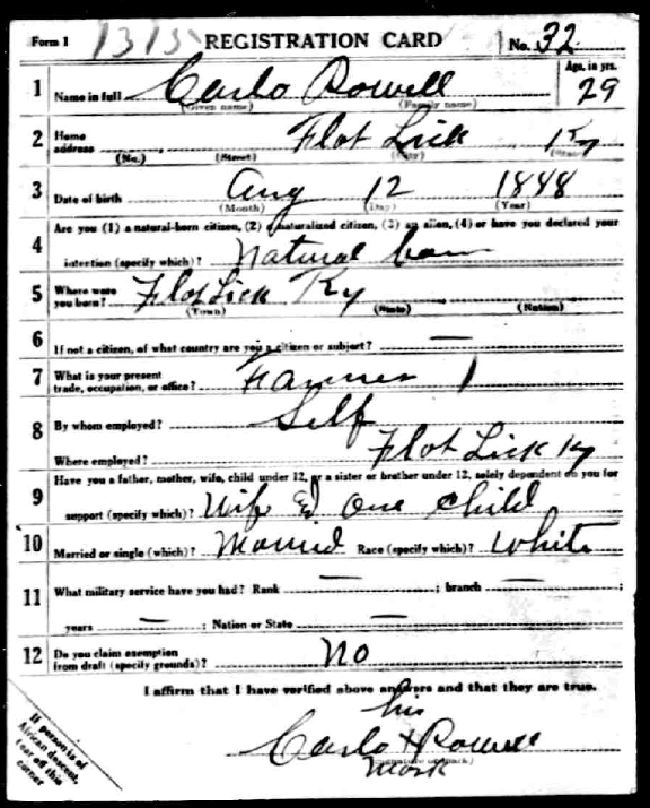 Form 1 1315 REGISTRATION CARD No. 32
1 Name in full Carlo Powell Age, in yrs. 29
(Given name) (Family name)
2 Home address Flat Lick Ky
(No.) (Street) (City) (State)
3 Date of birth Aug 12 1888
(Month) (Day) (Year)
4 Are you (1) a natural-born citizen, (2) a naturalized citizen, (3) an alien, (4) or have you declared your
intention (specify which)? Natural born
5 Where were you born? Flat Lick Ky
(Town) (State) (Nation)
6 If not a citizen, of what country are you a citizen or subject? —
7 What is your present trade, occupation, or office? Farmer 1
8 By whom employed? Self
Where employed? Flat Lick Ky
9 Have you a father, mother, wife, child under 12, or a sister or brother under 12, solely dependent on you for
support (specify which)? Wife & one child
10 Married or single (which)? Married Race (specify which)? White
11 What military service have you had? Rank — ; branch — ;
years — ; Nation or State —
12 Do you claim exemption from draft (specify grounds)? No
I affirm that I have verified above answers and that they are true.
his
Carlo X Powell
mark
If person is of
African descent,
tear off this
corner